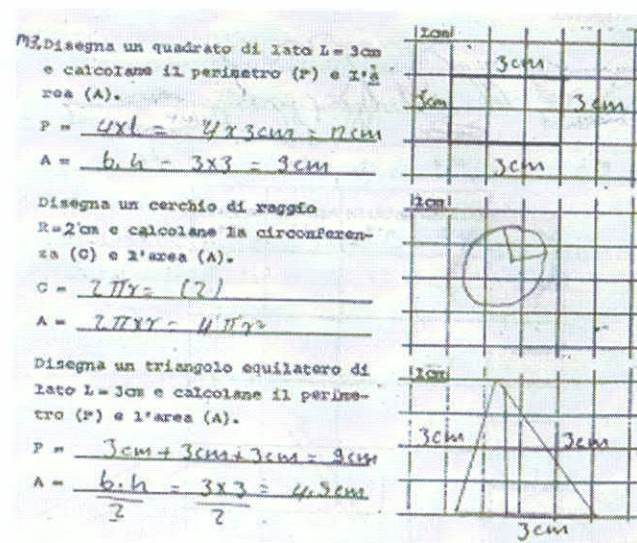 M3 Disegna un quadrato di lato L = 3cm
e calcolane il perimetro (P) e l'a
rea (A).
P = 4xl = 4x3cm = 12cm
A = b.h = 3x3 = 9cm
1cm
3cm
3cm
3cm
3cm
Disegna un cerchio di raggio
R=2cm e calcolane la circonferen-
za (C) e l'area (A).
C = 2πr = (2)
A = 2πxr = 4πr²
1cm
Disegna un triangolo equilatero di
lato L = 3cm e calcolane il perime-
tro (P) e l'area (A).
P = 3cm + 3cm + 3cm = 9cm
A = b.h/2 = 3x3/2 = 4,5cm
1cm
3cm
3cm
3cm